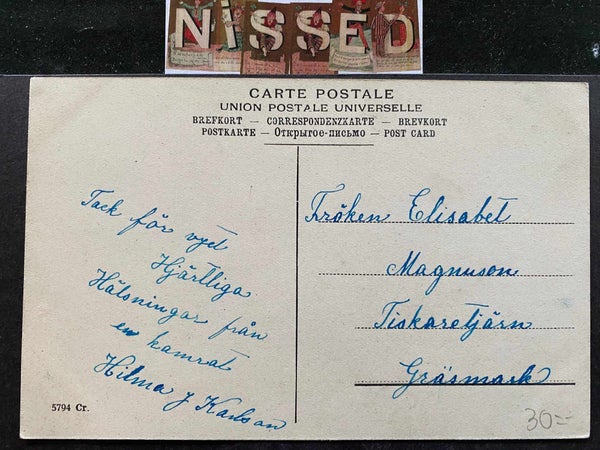 NISSED
CARTE POSTALE
UNION POSTALE UNIVERSELLE
BREFKORT — CORRESPONDENZKARTE — BREVKORT
POSTKARTE — Открытое-письмо — POST CARD
Tack för vyet
Hjärtliga
Hälsningar från
en kamrat
Hilma J Karlson
Fröken Elisabet
Magnuson
Tiskaretjärn
Gräsmark
5794 Cr.
30:-